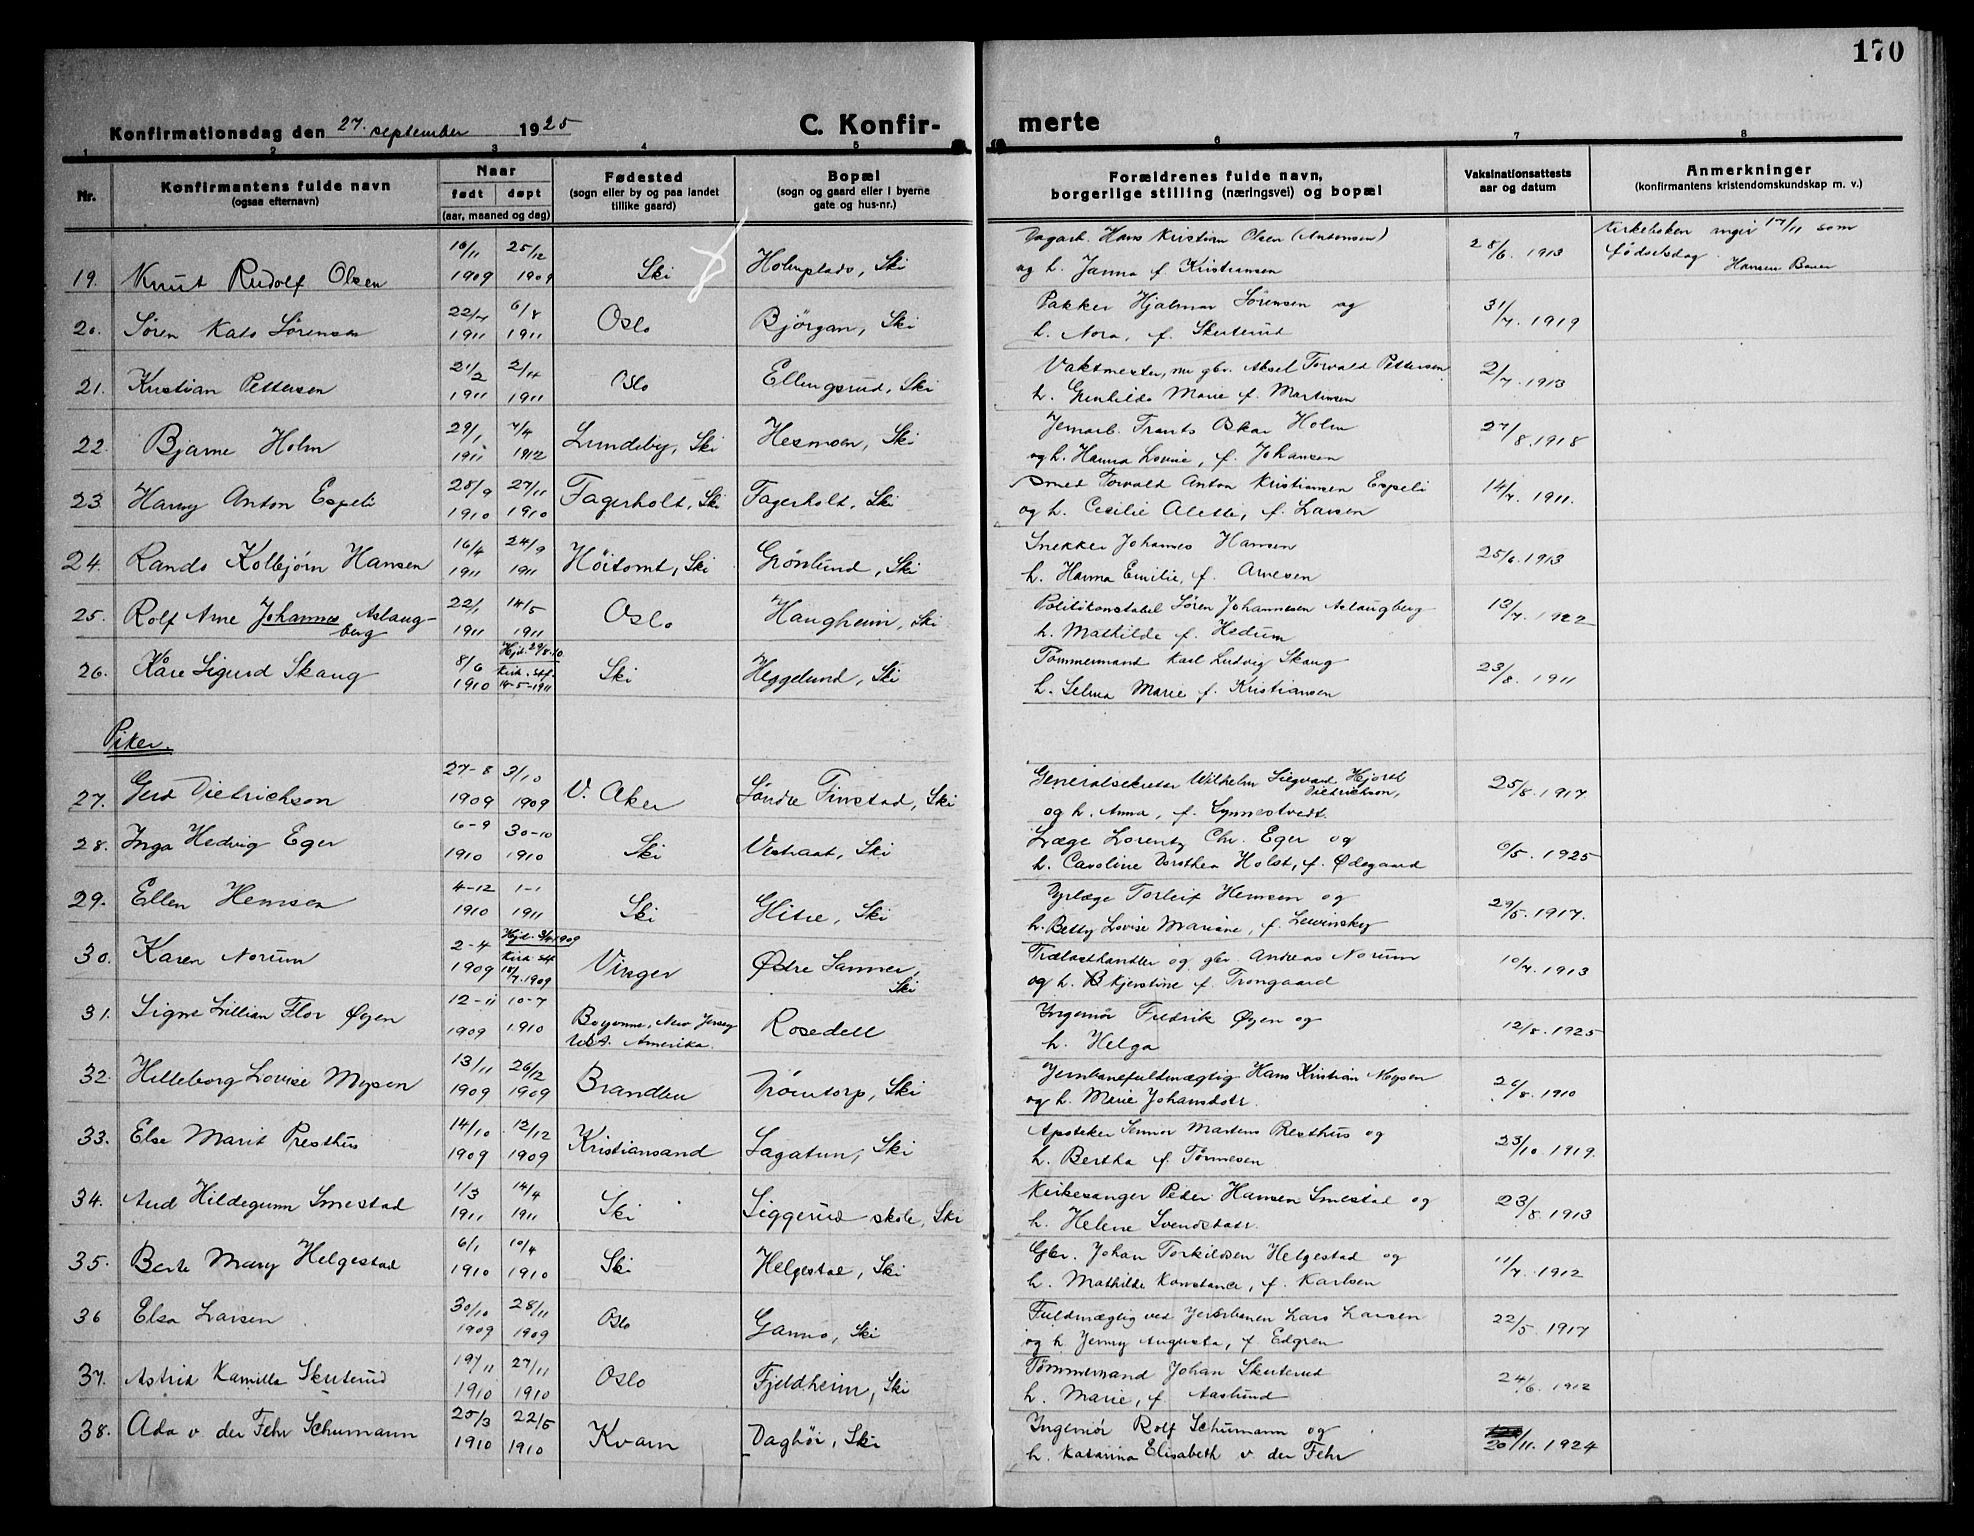 170
Konfirmationsdag den 27. september 1925
C. Konfir- merte
1 2 3 4 5 6 7 8
Nr.
Konfirmantens fulde navn
(ogsaa efternavn)
Naar
født døpt
(aar, maaned og dag)
Fødested
(sogn eller by og paa landet
tillike gaard)
Bopæl
(sogn og gaard eller i byerne
gate og hus-nr.)
Forældrenes fulde navn,
borgerlige stilling (næringsvei) og bopæl
Vaksinationsattests
aar og datum
Anmerkninger
(konfirmantens kristendomskundskap m. v.)
19. Knut Rudolf Olsen 25/12 1909 1909 Ski Ski
Dagarb. Hans Kristian Olsen (Antonsen)
og h. Janna f. Kristiansen
28/6 1913
Kirkeboken angir 17/11 som
fødselsdag. Hansen Bauer
20. Søren Kato Sørensen 22/7 1911 6/8 1911 Oslo Bjørgan, Ski
Pakker Hjalmar Sørensen og
h. Nora, f. Skuterud
31/7. 1919
21. Kristian Pettersen 21/2 1911 2/4 1911 Oslo Ellingsrud, Ski
Vaktmester, nu gbr. Aksel Torvald Pettersen
h. Gunhilda Marie f. Martinsen
2/7. 1913
22. Bjarne Holm 29/1 1911 7/4 1912 Lundeby, Ski Hesmoen, Ski
Jernarb. Frants Oskar Holm
og h. Hanna Lovise, f. Johansen
27/8. 1918
23. Harry Anton Espeli 28/9 1910 27/11 1910 Fagerholt, Ski Fagerholt, Ski
Smed Torvald Anton Kristiansen Espeli
og h. Cecilie Alette, f. Larsen
14/7. 1911.
24. Rando Kolbjørn Hansen 16/4 1911 24/9 1911 Høitomt, Ski Grønlund, Ski
Snekker Johannes Hansen
h. Hanna Emilie, f. Arnesen
25/6. 1913
25. Rolf Arne Johannes Aslaug-
berg 22/1 1911 14/5 1911 Oslo Haugheim, Ski
Politikonstabel Søren Johannesen Aslaugberg
h. Mathilde f. Hedum
13/7. 1922
26. Kåre Sigurd Skaug 8/6 1910 Hjd. 29/8-10
Kirk. stf.
14-5-1911 Ski Heggelund, Ski
Tømmermand Karl Ludvig Skaug
h. Selma Marie f. Kristiansen
23/8. 1911
Piker.
27. Gerd Dietrichson 27-8 1909 3/10 1909 V. Aker Søndre Finstad, Ski
Generalsekretær Wilhelm Siegvard Hjorth
Dietrichson,
og h. Anna, f. Lynnestvedt.
25/8. 1917
28. Inga Hedvig Eger 6-9 1910 30-10 1910 Ski Vestraat, Ski
Læge Lorentz Chr. Eger og
h. Caroline Dorothea Holst, f. Ødegaard
6/5. 1925
29. Ellen Hemsen 4-12 1910 1-1 1911 Ski Glitre, Ski
Dyrlæge Torleif Hemsen og
h. Betty Lovise Mariane, f. Lewinsky
29/5. 1917.
30. Karen Norum 2-4 1909 Hjd. 1909
Kirk. stf.
18/7. 1909 Vinger Østre Sanner,
Ski
Trælasthandler og gbr. Andreas Norum
og h. Kjerstine f. Trongaard
10/7. 1913
31. Signe Lillian Flor Øyen 12-11 1909 10-7 1910 Bayonne, New Jersey
U.S.A. Amerika. Rosedell
Ingeniør Fredrik Øyen og
h. Helga
12/8. 1925
32. Hilleborg Lovise Mysen 13/11 1909 26/12 1909 Brandbu Drømtorp, Ski
Jernbanefuldmægtig Hans Kristian Mysen
og h. Marie Johansdatr.
26/8. 1910
33. Else Marit Presthus 14/10 1909 12/12 1909 Kristiansand Sagatun, Ski
Apoteker Martens Presthus og
h. Bertha f. Tønnesen
23/10. 1919.
34. Aud Hildegunn Smestad 1/3 1911 14/4 1911 Ski Siggerud skole, Ski
Kirkesanger Peder Hansen Smestad og
h. Helene Svendsdatr.
23/8. 1913
35. Berte Mary Helgestad 6/1 1910 10/4 1910 Ski Helgestad, Ski
Gbr. Johan Torkildsen Helgestad og
h. Mathilde Konstance, f. Karlsen
11/7. 1912
36 Elsa Larsen 30/10 1909 28/11 1909 Oslo Ski
Fuldmægtig ved Jernbanen Lars Larsen
og h. Jenny Augusta, f. Edgren
22/5. 1917
37. Astrid Kamilla Skuterud 19/11 1910 27/11 1910 Oslo Fjeldheim, Ski
Tømmermand Johan Skuterud
h. Marie, f. Aaslund
24/6. 1912
38. Ada v der Fehr Schumann 25/3 1910 22/5 1910 Kvam Daghøi, Ski
Ingeniør Rolf Schumann og
h. Katarina Elisabeth v. der Fehr
20/11. 1924